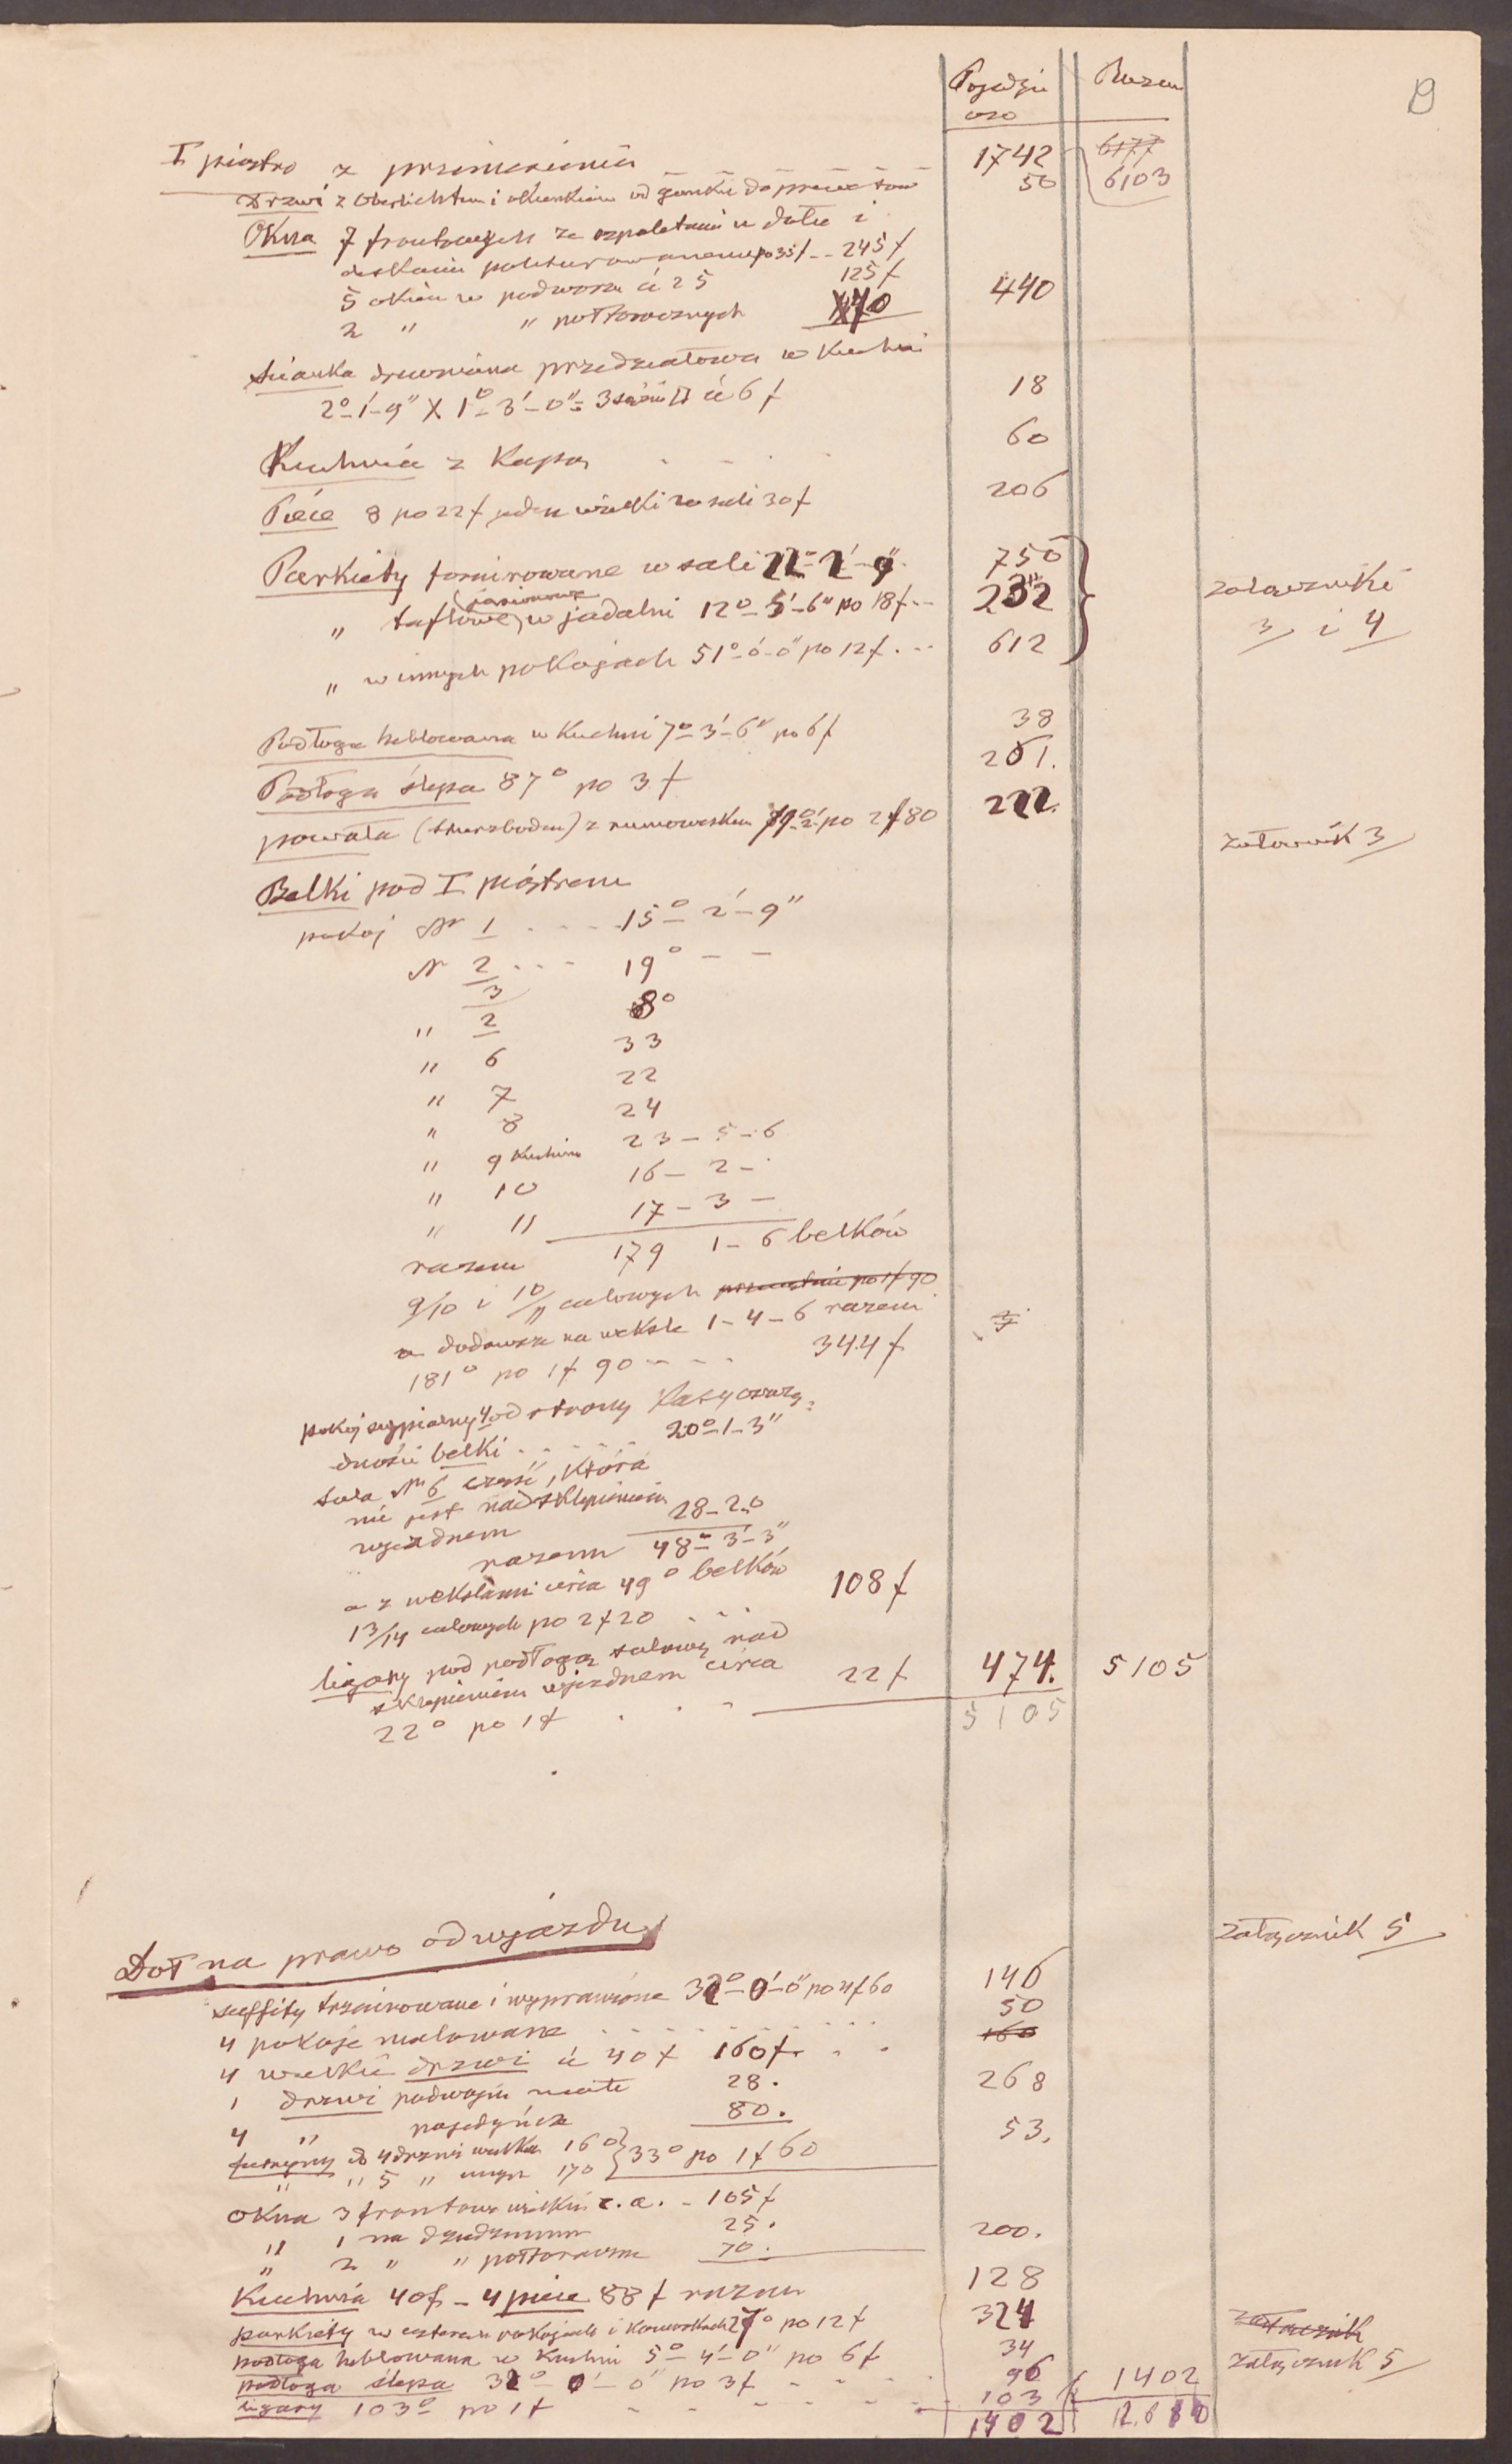 Pojedyń Razem
czo
I piętro z przeniesienia 1742 6177
Drzwi z Oberlichtem i okienkiem od ganku do 50 6103
Okna 7 frontowych ze szpaletami u dołu i
deskami politurowanemi po 35 f -- 245 f
5 okien w podwórzu à 25 125 f 440
2 " " półtoracznych 70
Ścianka drewniana przedziałowa w Kuchni
2° 1'-9" X 1°-3'-0" = 3 sążni □ à 6 f 18
Kuchnia z Kapą 60
Piece 8 po 22 f jeden wielki w sali 30 f 206
Parkiety fornirowane w sali 22°- 2'- 9" 750
(jasionowe
" taflowe) w jadalni 12°-5'-6" po 18 f -- 232 załączniki
3 i 4
" w innych pokojach 51°-0'-0" po 12 f . -- 612
Podłoga heblowana w Kuchni 7°-3'-6" po 6 f 38
Podłoga ślepa 87° po 3 f 261.
powała (Sturzboden) z rumowiskiem 79°-2' po 2 f 80 222. załącznik 3
Belki pod I piętrem
pokój Nr 1 .... 15°- 2'- 9"
Nr 2 ... 19° - -
3 8°
" 2
" 6 33
" 7 22
" 8 24
" 9 Kuchnia 23 - 5 - 6
" 10 16 - 2 -
" 11 17 - 3 -
razem 179 1 - 6 belków
9/10 i 10/11 calowych po 1 f 90
a dodawszy na weksle 1 - 4 - 6 razem
181° po 1 f 90 - - - 344 f
pokój sypialny 4 od strony Kasy oszczę-
dności belki ...... 20°-1-3"
sala Nr 6 część, która
nie jest nad sklepieniem
wjezdnem 28-2-0
razem 48°-3'-3"
a z wekslami circa 49° belków
13/14 calowych po 2 f 20 ... 108 f
ligary pod podłogą salową nad
sklepieniem wjezdnem circa
22° po 1 f . . - 22 f 474. 5105
5105
Dół na prawo od wjazdu załącznik 5
suffity trzcinowane i wyprawione 32°-0'-0" po 4 f 60 146
4 pokoje malowane ......... 50
4 wielkie drzwi à 40 f 160 f. . . 160
1 drzwi podwójne małe 28. 268
4 " pojedyńcze 80.
futryny do 4 drzwi wielkich 16° } 33° po 1 f 60 53.
" " 5 " mnych 17°
Okna 3 frontowe wielkie c.a. - 105 f
" 1 na dziedziniec 25. 200.
" 2 " " półtoraczne 70.
Kuchnia 40 f - 4 piece 88 f razem 128
parkiety w czterech pokojach i 27° po 12 f 324 załącznik
podłoga heblowana w Kuchni 5°- 4'- 0" po 6 f 34 załącznik 5
podłoga ślepa 32°- 0'- 0" po 3 f - - - 96 1402
ligary 103° po 1 f - - - - - 103
1402